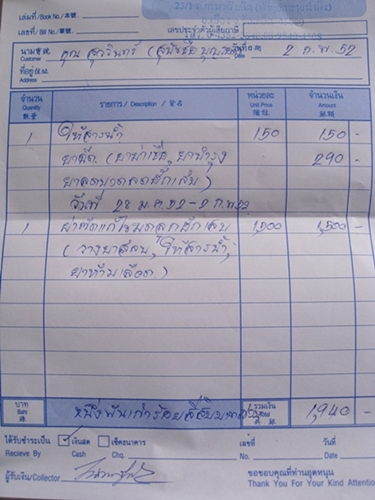 เล่มที่/Book No./本號
เลขที่/Bill No./票號. เลขประจำตัวผู้เสียภาษี
นามลูกค้า Customer คุณ สุวรินทร์ 2 ก.พ. 52
ที่อยู่ Address
จำนวน Quantity 數量 รายการ / Description / 貨名 หน่วยละ Unit Price 單價 จำนวนเงิน Amount 銀碼
1 ให้สารน้ำ 150 150 -
ยาฉีด (ยาฆ่าเชื้อ, ยาบำรุง 290 -
ยาลดปวดลดอักเสบ)
วันที่ 28 ม.ค. 52 - 2 ก.พ. 52
1 ผ่าตัดแก้ไขมดลูกอักเสบ 1,500 1,500 -
(วางยาสลบ, ให้สารน้ำ,
ยาห้ามเลือด)
บาท Baht 銖 หนึ่งพันเก้าร้อยสี่สิบบาท รวมเงิน Total 1,940 -
ได้รับชำระเป็น เงินสด เช็คธนาคาร เลขที่ วันที่
Recieve By Cash Chq. No. Date
ผู้รับเงิน/Collector ขอขอบคุณที่ท่านอุดหนุน
Thank You For Your Kind Attention